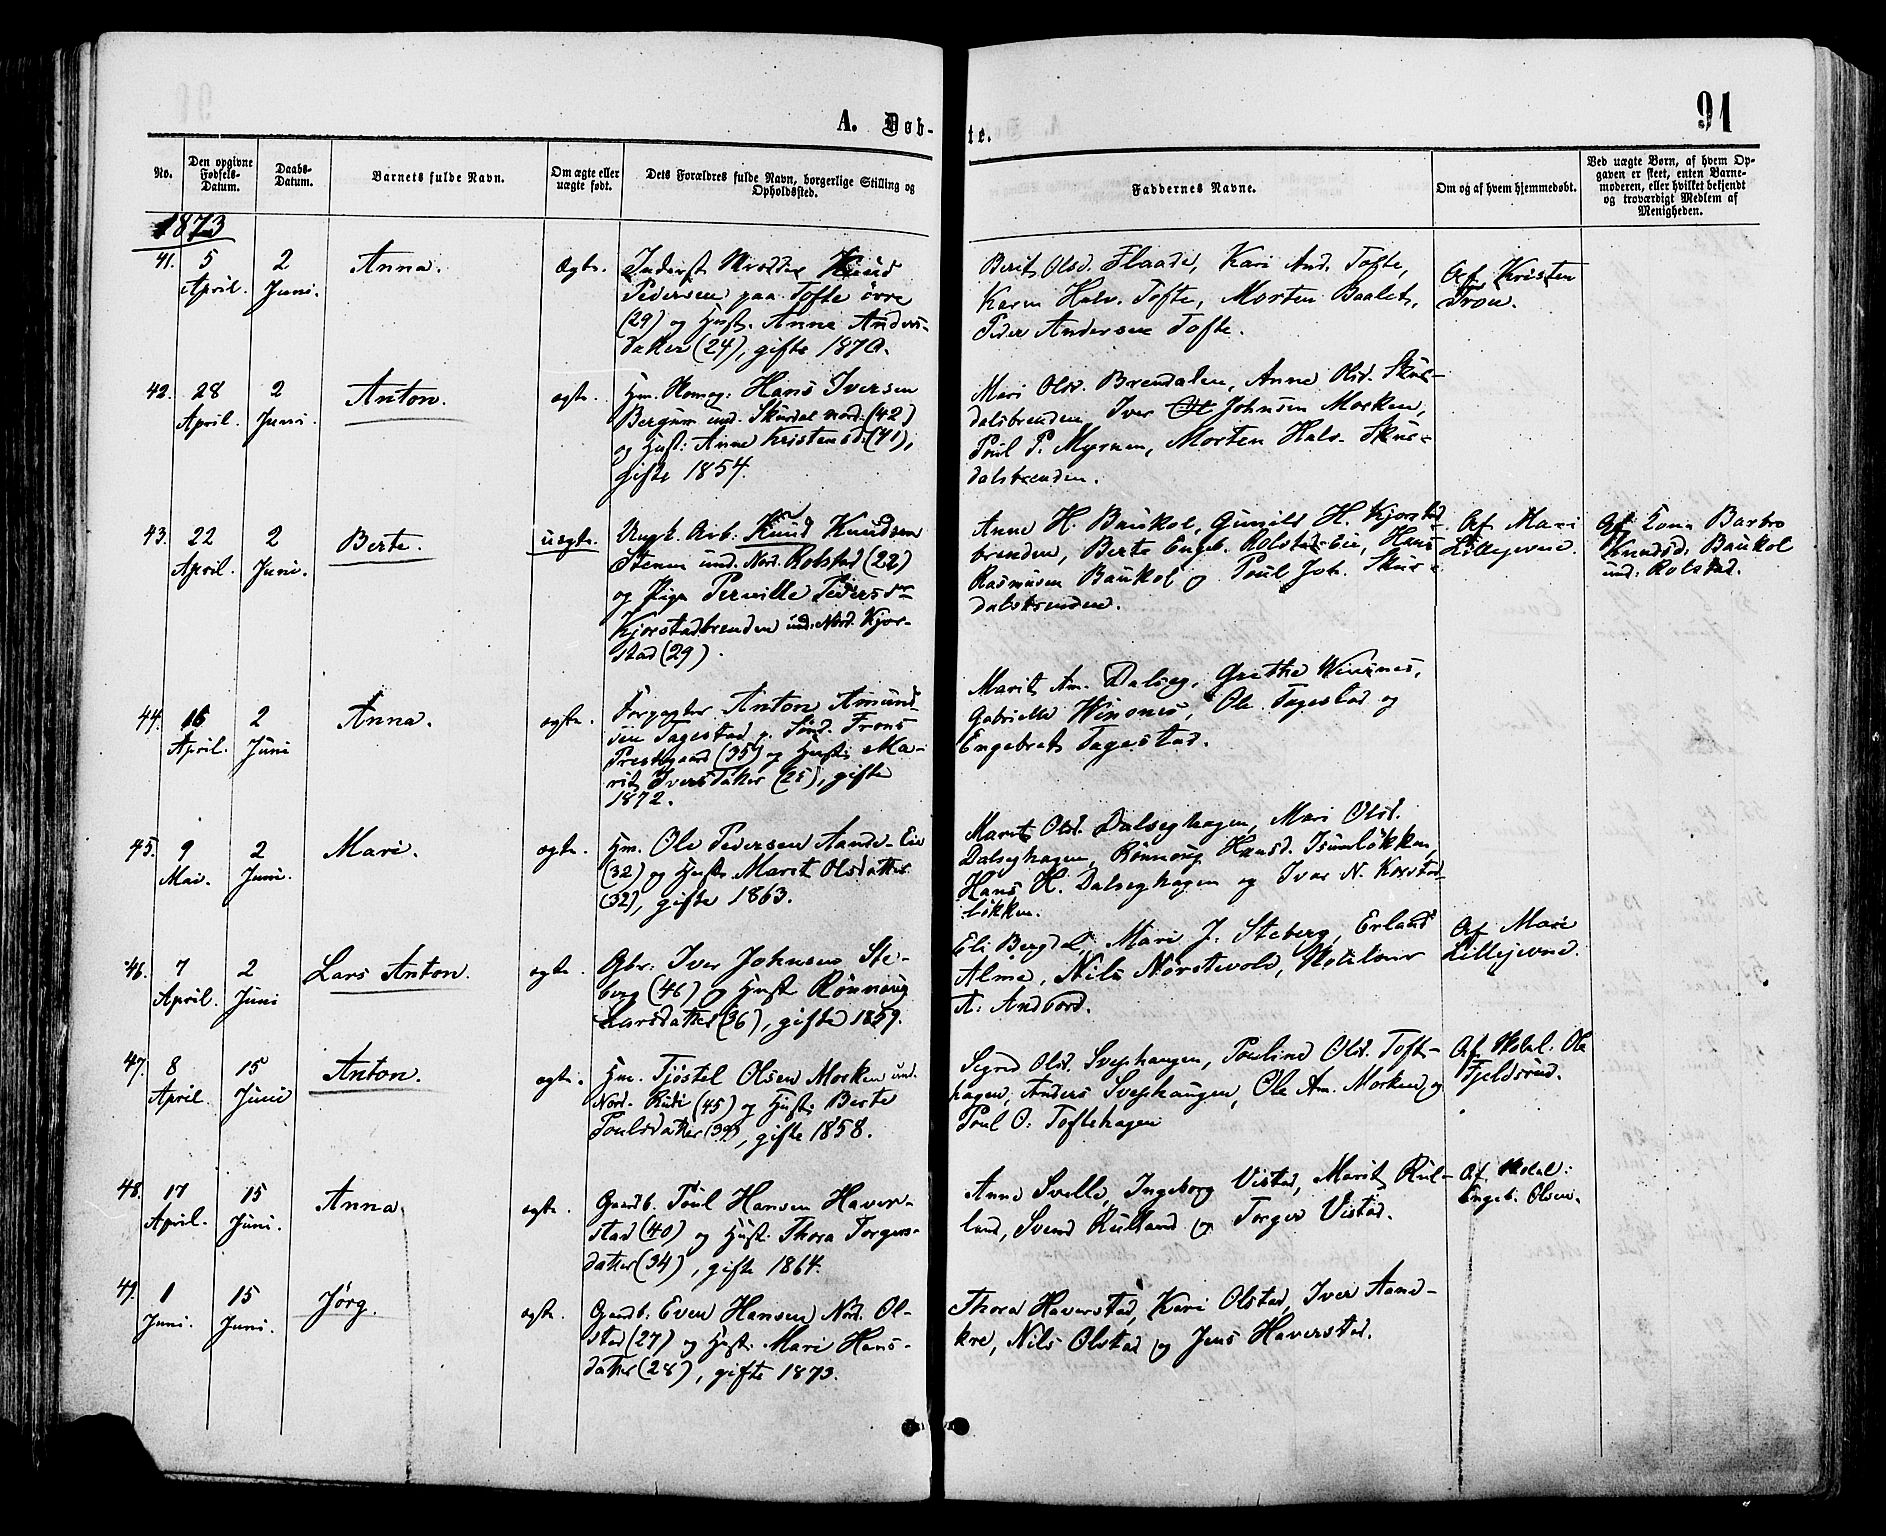 91
A. Døb-te.
No.
Den opgivne Fødsels-Datum.
Daabs-Datum.
Barnets fulde Navn.
Om ægte eller uægte født.
Dets Forældres fulde Navn, borgerlige Stilling og Opholdssted.
Faddernes Navne.
Om og af hvem hjemmedøbt.
Ved uægte Børn, af hvem Opgaven er skeet, enten Barnemoderen, eller hvilket bekjendt og troværdigt Medlem af Menigheden.
1873
41. 5 April. 2 Juni. Anna. Ægte.
Inderst Knud
Pedersen paa Tofte övre
(29) og Hust. Anne Anders-
datter (24), gifte 1870.
Berit Olsd. Flaade, Kari And. Tofte,
Karen Halv. Tofte, Morten Baalet,
Peder Andersen Tofte.
Af Kristen
Tron.
42. 28 April. 2 Juni. Anton. ægte.
Hm. Hans Iversen
Bergum und. Skurdal nord. (42)
og Hust: Anne Kristensd. (41),
gifte 1854.
Mari Olsd. Brendalen, Anne Olsd. Skur-
dalsbrenden, Iver Johnsen Morken,
Poul P. Myrmen, Morten Halv. Skur-
dalsbrenden.
43. 22 April. 2 Juni. Berte. uægte.
Ungk. Arb: Knud Knudsen
Stenen und. Nor. Rolstad (22)
og Pige Pernille Pedersdr
Kjorstadbrenden und. Nord. Kjor-
stad (29).
Anne H. Baukol, Gunild H. Kjorstad-
brenden, Berte Engeb. Rolstad-Eie, Hans
Rasmusen Baukol og Poul Joh. Skur-
dalsbrenden.
Af Mari
Lillejevne.
Af Kona Barbro
Knudsd. Baukol
und: Rolstad.
44. 16 April. 2 Juni Anna. ægte.
Forpagter Anton Amund-
sen Tagestad p. Sönd. Frons
Prestegaard (35) og Hust: Ma-
rit Iversdatter (25), gifte
1872.
Marit Am. Dalseg, Grethe Winsnes,
Gabrielle Winsnes, Ole Tagestad og
Engebret Tagestad.
45. 9 Mai. 2 Juni. Mari. ægte.
Hm. Ole Pedersen Aande-Eie
(32) og Hust. Marit Olsdatter
(32), gifte 1863.
Marit Olsd. Dalseghagen, Mari Olsd.
Dalseghagen, Rönnoug Hansd. Isumlökken,
Hans H. Dalseghagen og Ivar N. Korstad-
lökken.
46. 7 April. 2 Juni Lars Anton. ægte.
Gbr: Iver Johnsen Ste-
berg (46) og Hust. Rönnoug
Larsdatter (36), gifte 1859.
Eli Bergdal, Mari J. Steberg, Erland
Alme, Nils Norstevold,
A. Andvord.
Af Mari
Lillejevne.
47. 8 April. 15 Juni Anton. ægte.
Hm. Tjöstel Olsen Morken und.
Nord. Rudi (45) og Hust: Berte
Poulsdatter (39), gifte 1858.
Sigrid Olsd. Svephaugen, Pouline Olsd. Tofte-
hagen, Anders Svephaugen, Ole Am. Morken og
Poul O. Toftehagen
Af Skolel: Ole
Fjeldsrud.
48. 17 April. 15 Juni. Anna. ægte.
Gaardb. Poul Hansen Haver-
stad (40) og Hust. Thora Torgers-
datter (34), gifte 1864.
Anne Svelle, Ingeborg Vistad, Marit Rul-
land, Svend Rulland og Torger Vistad.
Af Skolel:
Engeb. Olsen.
49. 1 Juni. 15 Juni. Jörg. ægte.
Gaardb: Even Hansen Nord. Ol-
stad (27) og Hust: Mari Hans-
datter (28), gifte 1873.
Thora Haverstad, Kari Olstad, Iver Aand-
kre, Nils Olstad og Jens Haverstad.